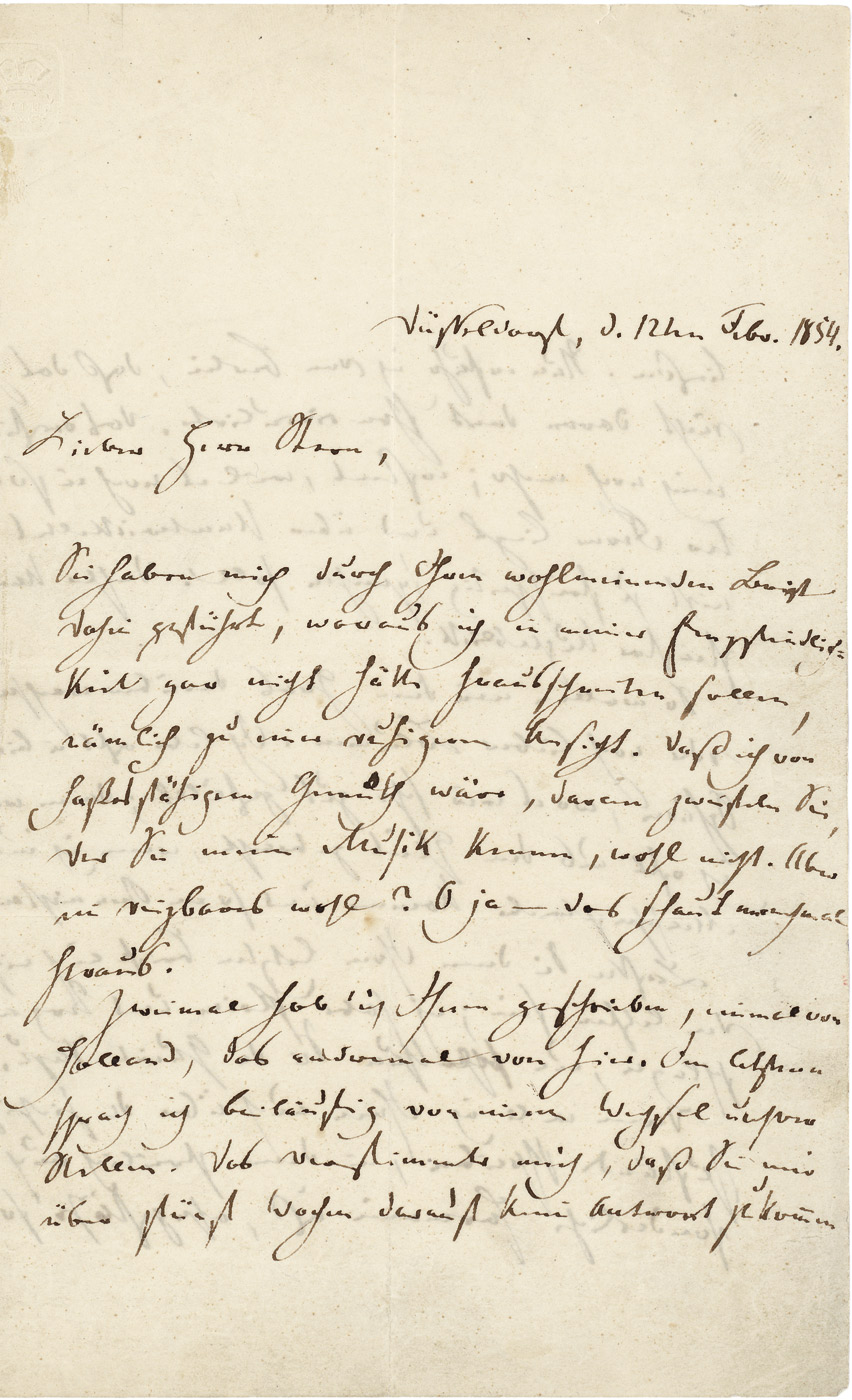 Düsseldorf, d. 12ten Febr. 1854.
Lieber Herr Stern,
Sie haben mich durch Ihren wohlmeinenden Brief
dahin geführt, woraus ich in meiner Empfindlich=
keit gar nicht hätte herausschreiten sollen,
nämlich zu einer ruhigeren Ansicht. Daß ich von
haßesfähigem Gemüth wäre, daran zweifeln Sie,
der Sie meine Musik kennen, wohl nicht. Aber
ein reizbares wohl? O ja — das schaut manchmal
heraus.
Zweimal hab' ich Ihnen geschrieben, einmal von
Holland, das andremal von hier. Im letztern
sprach ich beiläufig von einem Wechsel unsrer
Stellen. Das verstimmte mich, daß Sie mir
über fünf Wochen darauf keine Antwort zukommen